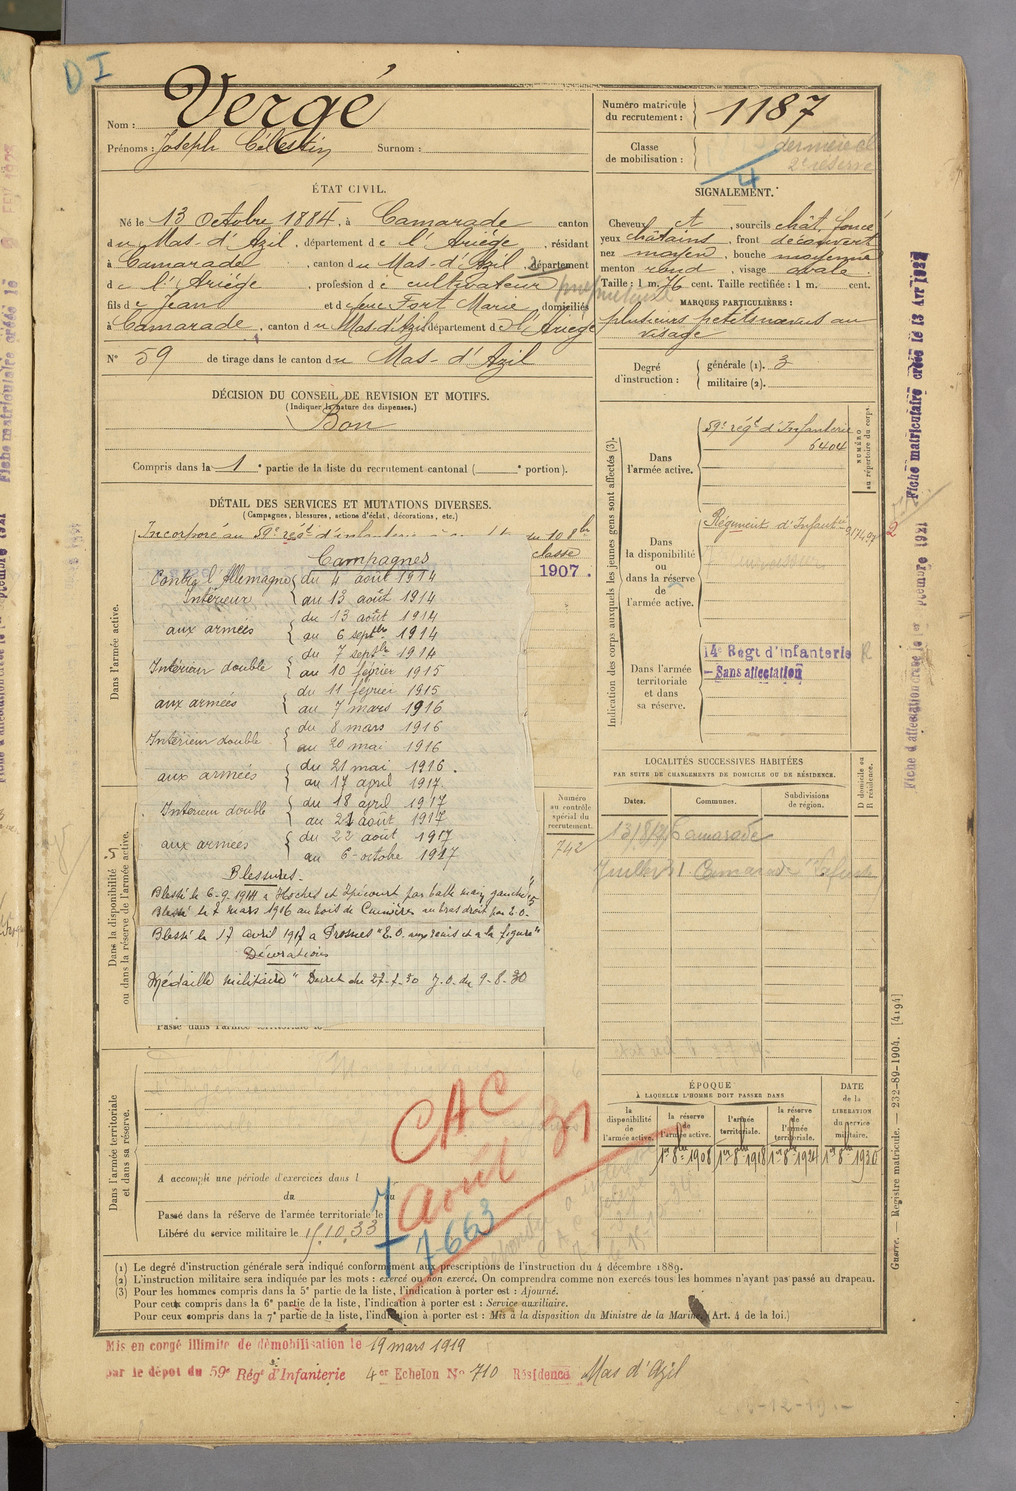 D I
Nom : Vergé
Prénoms : Joseph Célestin Surnom :
Numéro matricule
du recrutement : 1187
Classe
de mobilisation : dernière de
2e réserve
4
ÉTAT CIVIL.
Né le 13 Octobre 1884, à Camarade canton
du Mas-d'Azil, département de l'Ariège, résidant
à Camarade, canton du Mas-d'Azil, département
de l'Ariège, profession de cultivateur propriétaire
fils de Jean et de feue Fort Marie, domiciliés
à Camarade, canton du Mas d'Azil département de l'Ariège
N° 59 de tirage dans le canton du Mas-d'Azil
SIGNALEMENT.
Cheveux ct, sourcils chât. foncé
yeux châtains, front découvert
nez moyen, bouche moyenne
menton rond, visage ovale.
Taille : 1 m. 76 cent. Taille rectifiée : 1 m. cent.
MARQUES PARTICULIÈRES :
plusieurs petits nœvus au
visage
Degré
d'instruction :
générale (1). 3
militaire (2).
DÉCISION DU CONSEIL DE REVISION ET MOTIFS.
(Indiquer la nature des dispenses.)
Bon
Compris dans la 1e partie de la liste du recrutement cantonal ( e portion).
DÉTAIL DES SERVICES ET MUTATIONS DIVERSES.
(Campagnes, blessures, actions d'éclat, décorations, etc.)
Incorporé au 59e régt d'infanterie du 10 8bre
classe
1907.
Campagnes
Contre l'Allemagne du 4 août 1914
Intérieur au 13 août 1914
aux armées du 13 août 1914
au 6 septbre 1914
Intérieur double du 7 septbre 1914
au 10 février 1915
aux armées du 11 février 1915
au 7 mars 1916
Intérieur double du 8 mars 1916
au 20 mai 1916
aux armées du 21 mai 1916.
au 17 avril 1917
Intérieur double du 18 avril 1917
au 21 août 1917
aux armées du 22 août 1917
au 6 octobre 1917
Blessures.
Blessé le 6-9-1914 à Hoches et Hpicourt par balle main gauche
Blessé le 7 mars 1916 au bois de Cumières au bras droit par E.O.
Blessé le 17 avril 1917 à Prosnes "E.O. aux reins et à la figure"
Décorations
Médaille militaire " Décret du 27-7-30 J.O. du 9-8-30
Passé dans l'armée territoriale le
Dans l'armée active.
Dans la disponibilité
ou dans la réserve de l'armée active.
Dans l'armée territoriale
et dans sa réserve.
Numéro
au contrôle
spécial du
recrutement.
742
Indication des corps auxquels les jeunes gens sont affectés (3).
Dans
l'armée active.
59e régt d'Infanterie
6404
NUMÉRO
au répertoire du corps.
Dans
la disponibilité
ou
dans la réserve
de
l'armée active.
Régiment d'Infanterie
2
Dans l'armée
territoriale
et dans
sa réserve.
14e Régt d'infanterie R
— Sans affectation
LOCALITÉS SUCCESSIVES HABITÉES
PAR SUITE DE CHANGEMENTS DE DOMICILE OU DE RÉSIDENCE.
Dates. Communes. Subdivisions
de région.
D domicile ou
R résidence.
Camarade
Juillet 31 Camarade
ÉPOQUE
À LAQUELLE L'HOMME DOIT PASSER DANS
la
disponibilité
de
l'armée active.
la réserve
de
l'armée active.
l'armée
territoriale.
la réserve
de
l'armée
territoriale.
DATE
de la
LIBÉRATION
du service
militaire.
1er 8bre 1908 1er 8bre 1918 1er 8bre 1924 1er 8bre 1930
CAC
7 Août 31
7-663
A accompli une période d'exercices dans l
du au
Passé dans la réserve de l'armée territoriale le
Libéré du service militaire le 15.10.33
(1) Le degré d'instruction générale sera indiqué conformément aux prescriptions de l'instruction du 4 décembre 1889.
(2) L'instruction militaire sera indiquée par les mots : exercé ou non exercé. On comprendra comme non exercés tous les hommes n'ayant pas passé au drapeau.
(3) Pour les hommes compris dans la 5e partie de la liste, l'indication à porter est : Ajourné.
Pour ceux compris dans la 6e partie de la liste, l'indication à porter est : Service auxiliaire.
Pour ceux compris dans la 7e partie de la liste, l'indication à porter est : Mis à la disposition du Ministre de la Marine (Art. 4 de la loi.)
Mis en congé illimité de démobilisation le 19 mars 1919
par le dépôt du 59e Régt d'Infanterie 4er Echelon No 710 Résidence Mas d'Azil
Guerre. — Registre matricule. — 232-89-1904. [4194]
Fiche matriculaire créée le 13 Avr 1921
Fiche d'affectation créée le 1er Septembre 1921